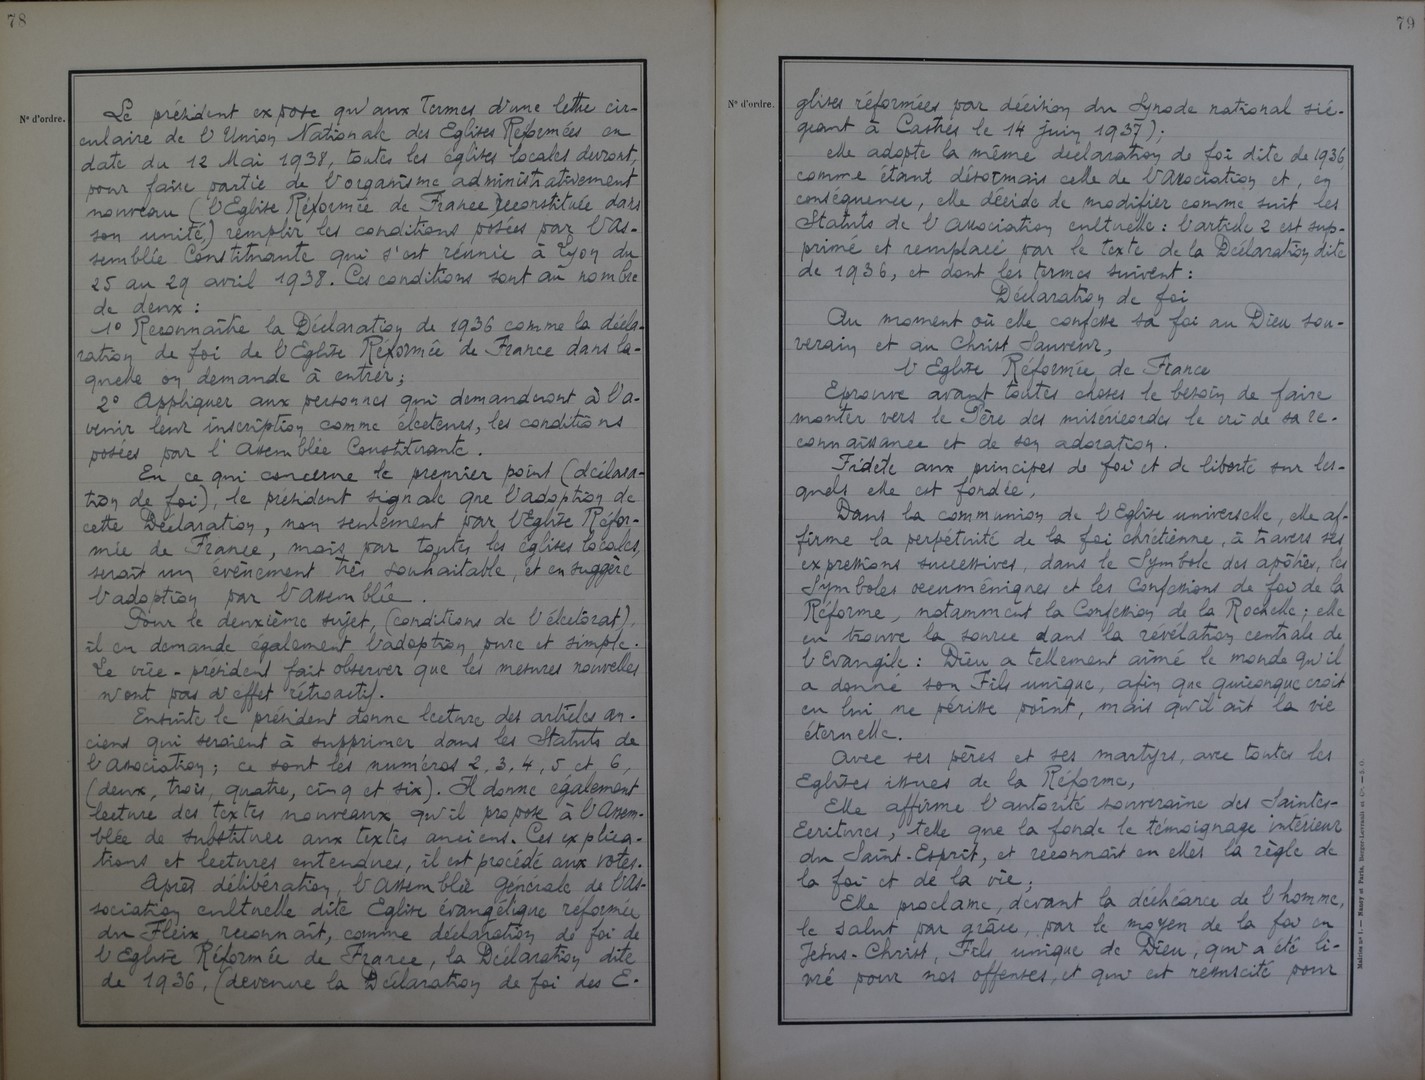 78
N° d'ordre.
Le président expose qu'aux termes d'une lettre cir-
culaire de l'Union Nationale des Eglises Réformées en
date du 12 Mai 1938, toutes les églises locales devront,
pour faire partie de l'organisme administrativement
nouveau (l'Eglise Réformée de France reconstituée dans
son unité,) remplir les conditions posées par l'As-
semblée Constituante qui s'est réunie à Lyon du
25 au 29 avril 1938. Ces conditions sont au nombre
de deux :
1° Reconnaître la Déclaration de 1936 comme la décla-
ration de foi de l'Eglise Réformée de France dans la-
quelle on demande à entrer;
2° Appliquer aux personnes qui demanderont à l'a-
venir leur inscription comme électeurs, les conditions
posées par l'Assemblée Constituante.
En ce qui concerne le premier point (déclara-
tion de foi), le président signale que l'adoption de
cette Déclaration, non seulement par l'Eglise Réfor-
mée de France, mais par toutes les églises locales,
serait un évènement très souhaitable, et en suggère
l'adoption par l'Assemblée.
Pour le deuxième sujet, (conditions de l'électorat),
il en demande également l'adoption pure et simple.
Le vice-président fait observer que les mesures nouvelles
n'ont pas d'effet rétroactif.
Ensuite le président donne lecture des articles an-
ciens qui seraient à supprimer dans les Statuts de
l'Association; ce sont les numéros 2, 3, 4, 5 et 6,
(deux, trois, quatre, cinq et six). Il donne également
lecture des textes nouveaux qu'il propose à l'Assem-
blée de substituer aux textes anciens. Ces explica-
tions et lectures entendues, il est procédé aux votes.
Après délibération, l'Assemblée Générale de l'As-
sociation cultuelle dite Eglise évangélique réformée
du Fleix, reconnaît, comme déclaration de foi de
l'Eglise Réformée de France, la Déclaration dite
de 1936, (devenue la Déclaration de foi des E-
79
N° d'ordre.
glises réformées par décision du Synode national sié-
geant à Castres le 14 juin 1937);
elle adopte la même déclaration de foi dite de 1936
comme étant désormais celle de l'Association et, en
conséquence, elle décide de modifier comme suit les
Statuts de l'Association cultuelle : l'article 2 est sup-
primé et remplacé par le texte de la Déclaration dite
de 1936, et dont les termes suivent :
Déclaration de foi
Au moment où elle confesse sa foi au Dieu sou-
verain et au Christ Sauveur,
l'Eglise Réformée de France
Eprouve avant toutes choses le besoin de faire
monter vers le Père des miséricordes le cri de sa re-
connaissance et de son adoration.
Fidèle aux principes de foi et de liberté sur les-
quels elle est fondée,
Dans la communion de l'Eglise universelle, elle af-
firme la perpétuité de la foi chrétienne, à travers ses
expressions successives, dans le Symbole des apôtres, les
Symboles œcuméniques et les Confessions de foi de la
Réforme, notamment la Confession de la Rochelle; elle
en trouve la source dans la révélation centrale de
l'Evangile : Dieu a tellement aimé le monde qu'il
a donné son Fils unique, afin que quiconque croit
en lui ne périsse point, mais qu'il ait la vie
éternelle.
Avec ses pères et ses martyrs, avec toutes les
Eglises issues de la Réforme,
Elle affirme l'autorité souveraine des Saintes-
Ecritures, telle que la fonde le témoignage intérieur
du Saint-Esprit, et reconnaît en elles la règle de
la foi et de la vie;
Elle proclame, devant la déchéance de l'homme,
le salut par grâce, par le moyen de la foi en
Jésus-Christ, Fils unique de Dieu, qui a été li-
vré pour nos offenses, et qui est ressuscité pour
Nancy et Paris, Berger-Levrault et Cie.